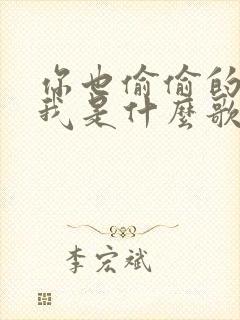 你也偷偷的
我是什麼歌
李宏斌